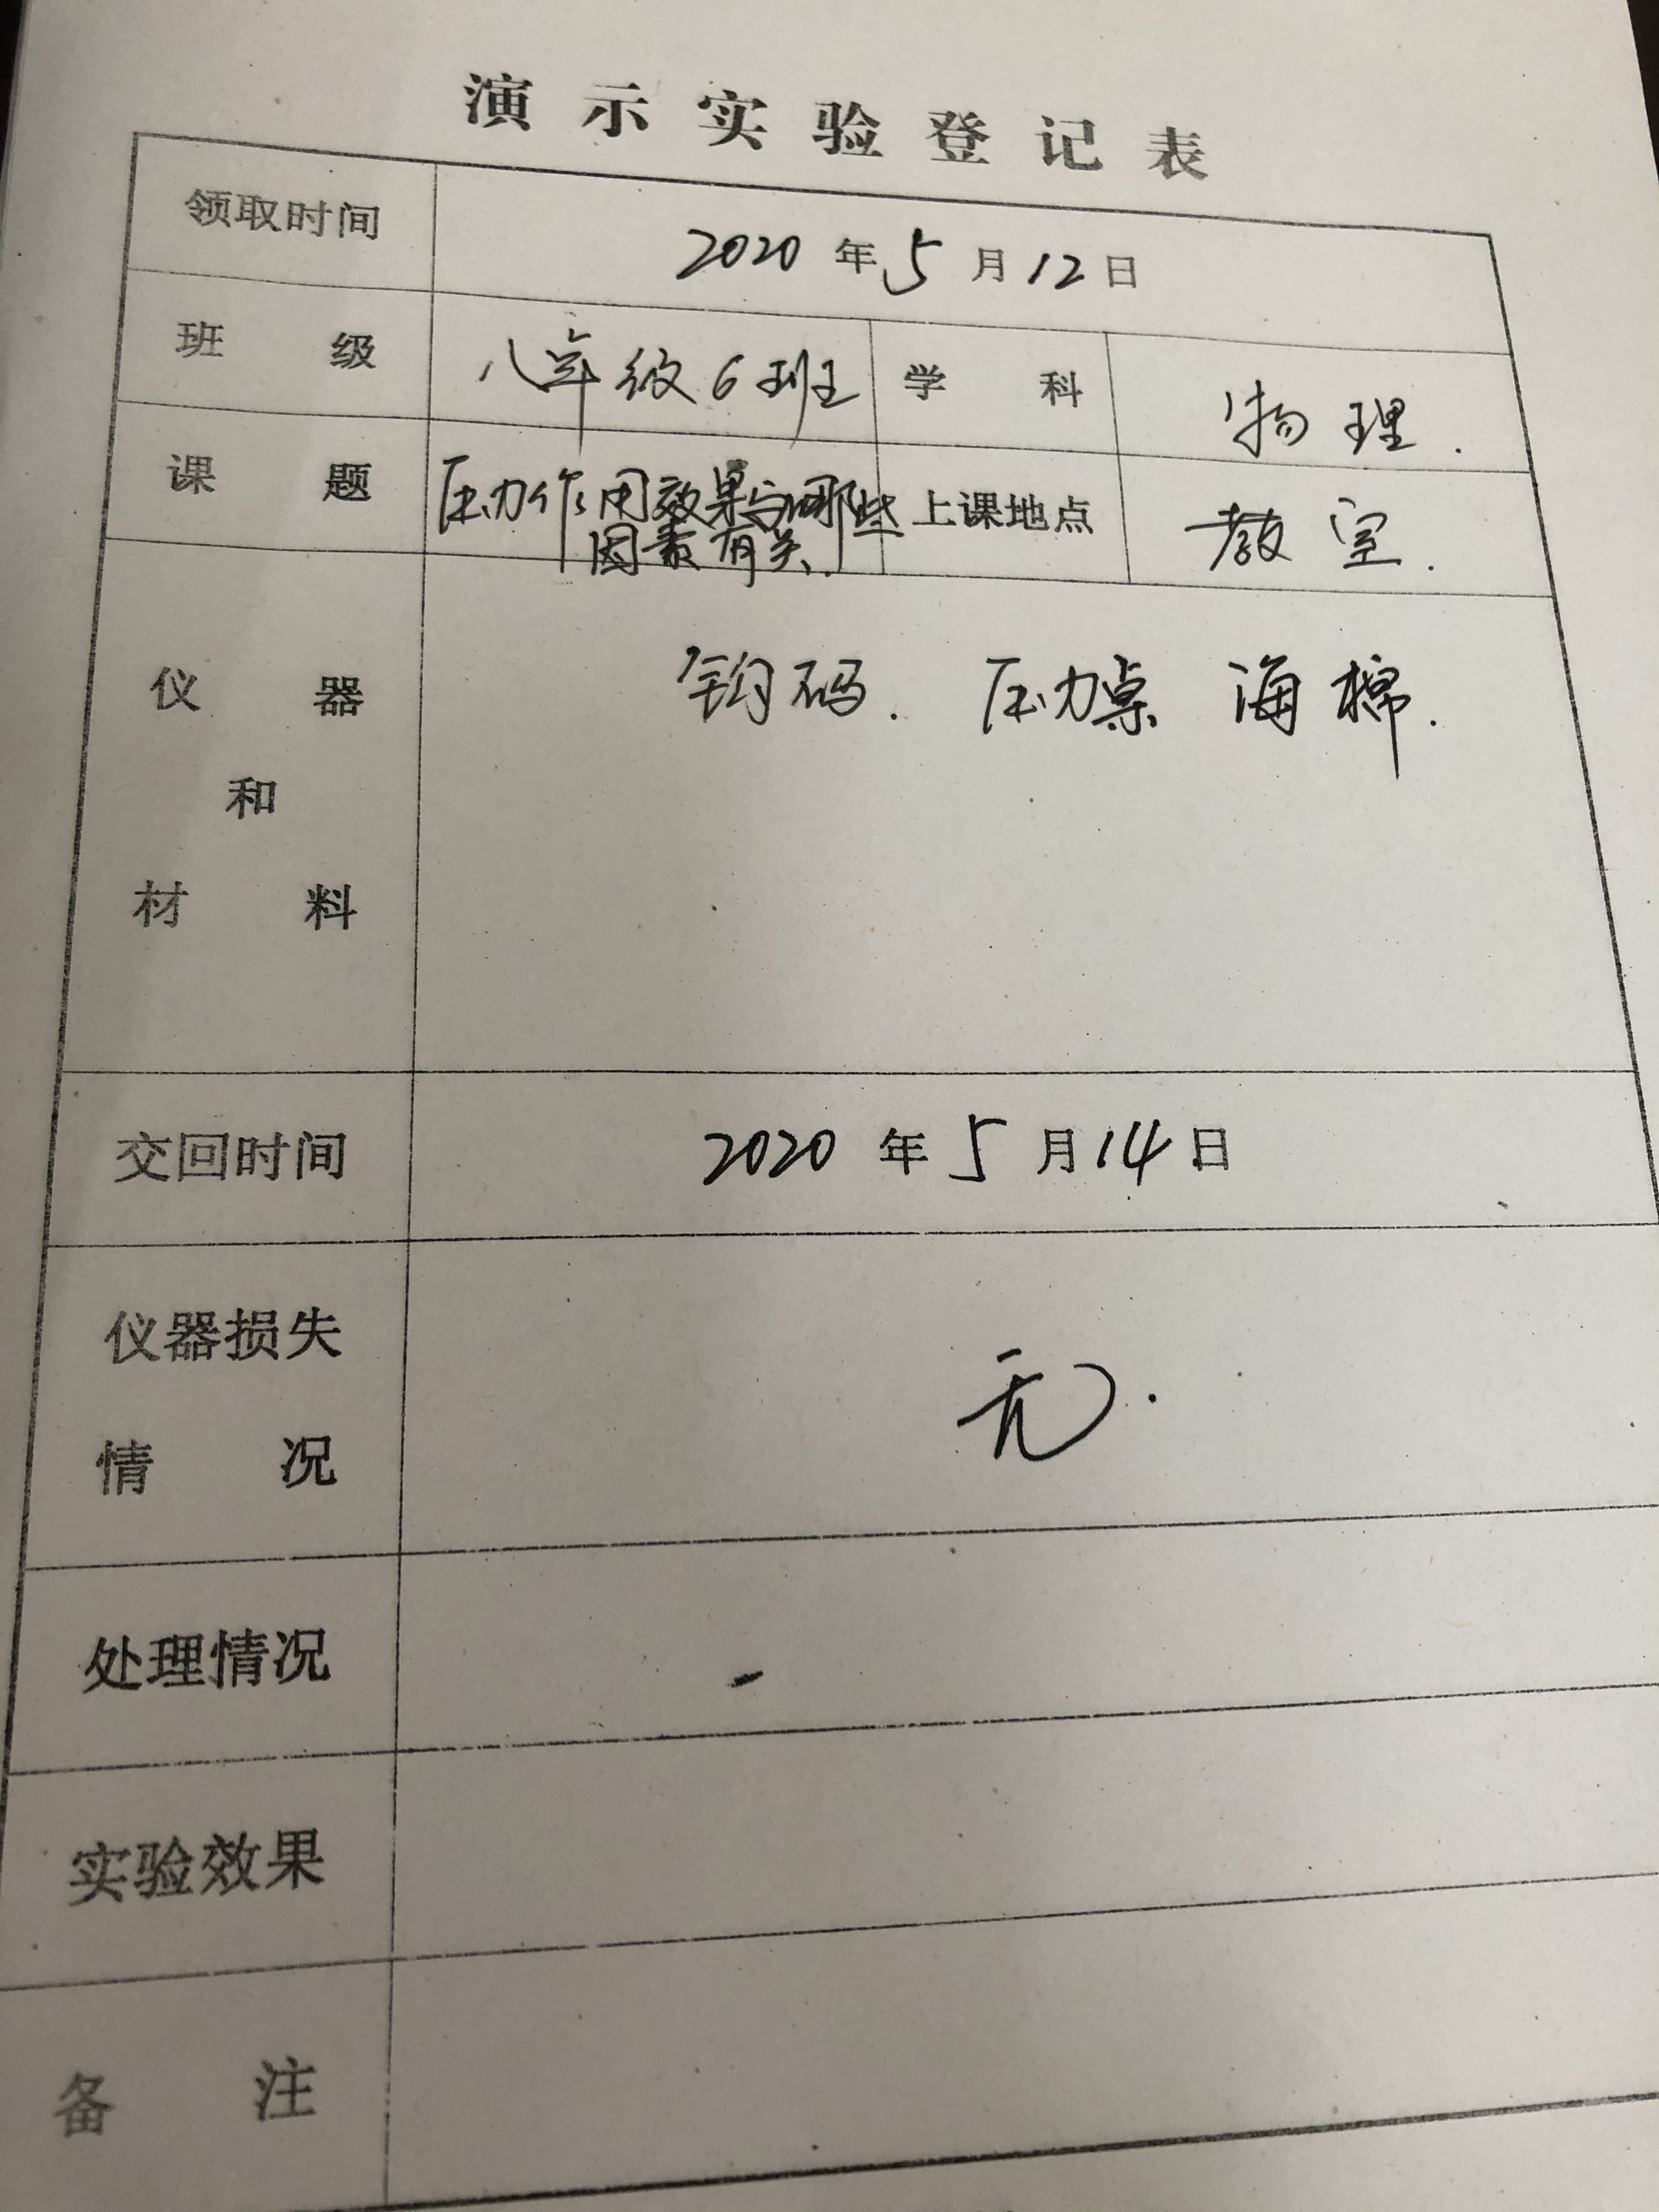 演示实验登记表
领取时间 2020年5月12日
班级 八年级6班 学科 物理.
课题 压力作用效果与哪些 上课地点 教室.
因素有关.
仪器 钩码. 压力桌 海棉.
和
材料
交回时间 2020年5月14日
仪器损失
情况 无.
处理情况
实验效果
备注